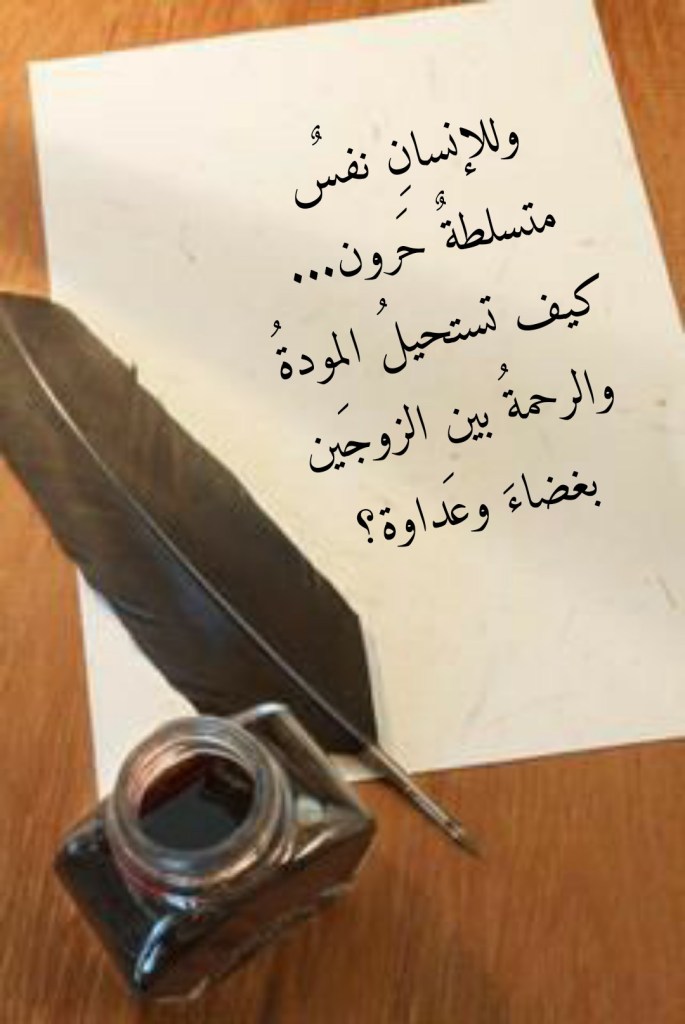 وللإنسانِ نفسٌ
متسلطةٌ حَرون...
كيف تستحيلُ المودةُ
والرحمةُ بين الزوجَين
بغضاءَ وعَداوة؟